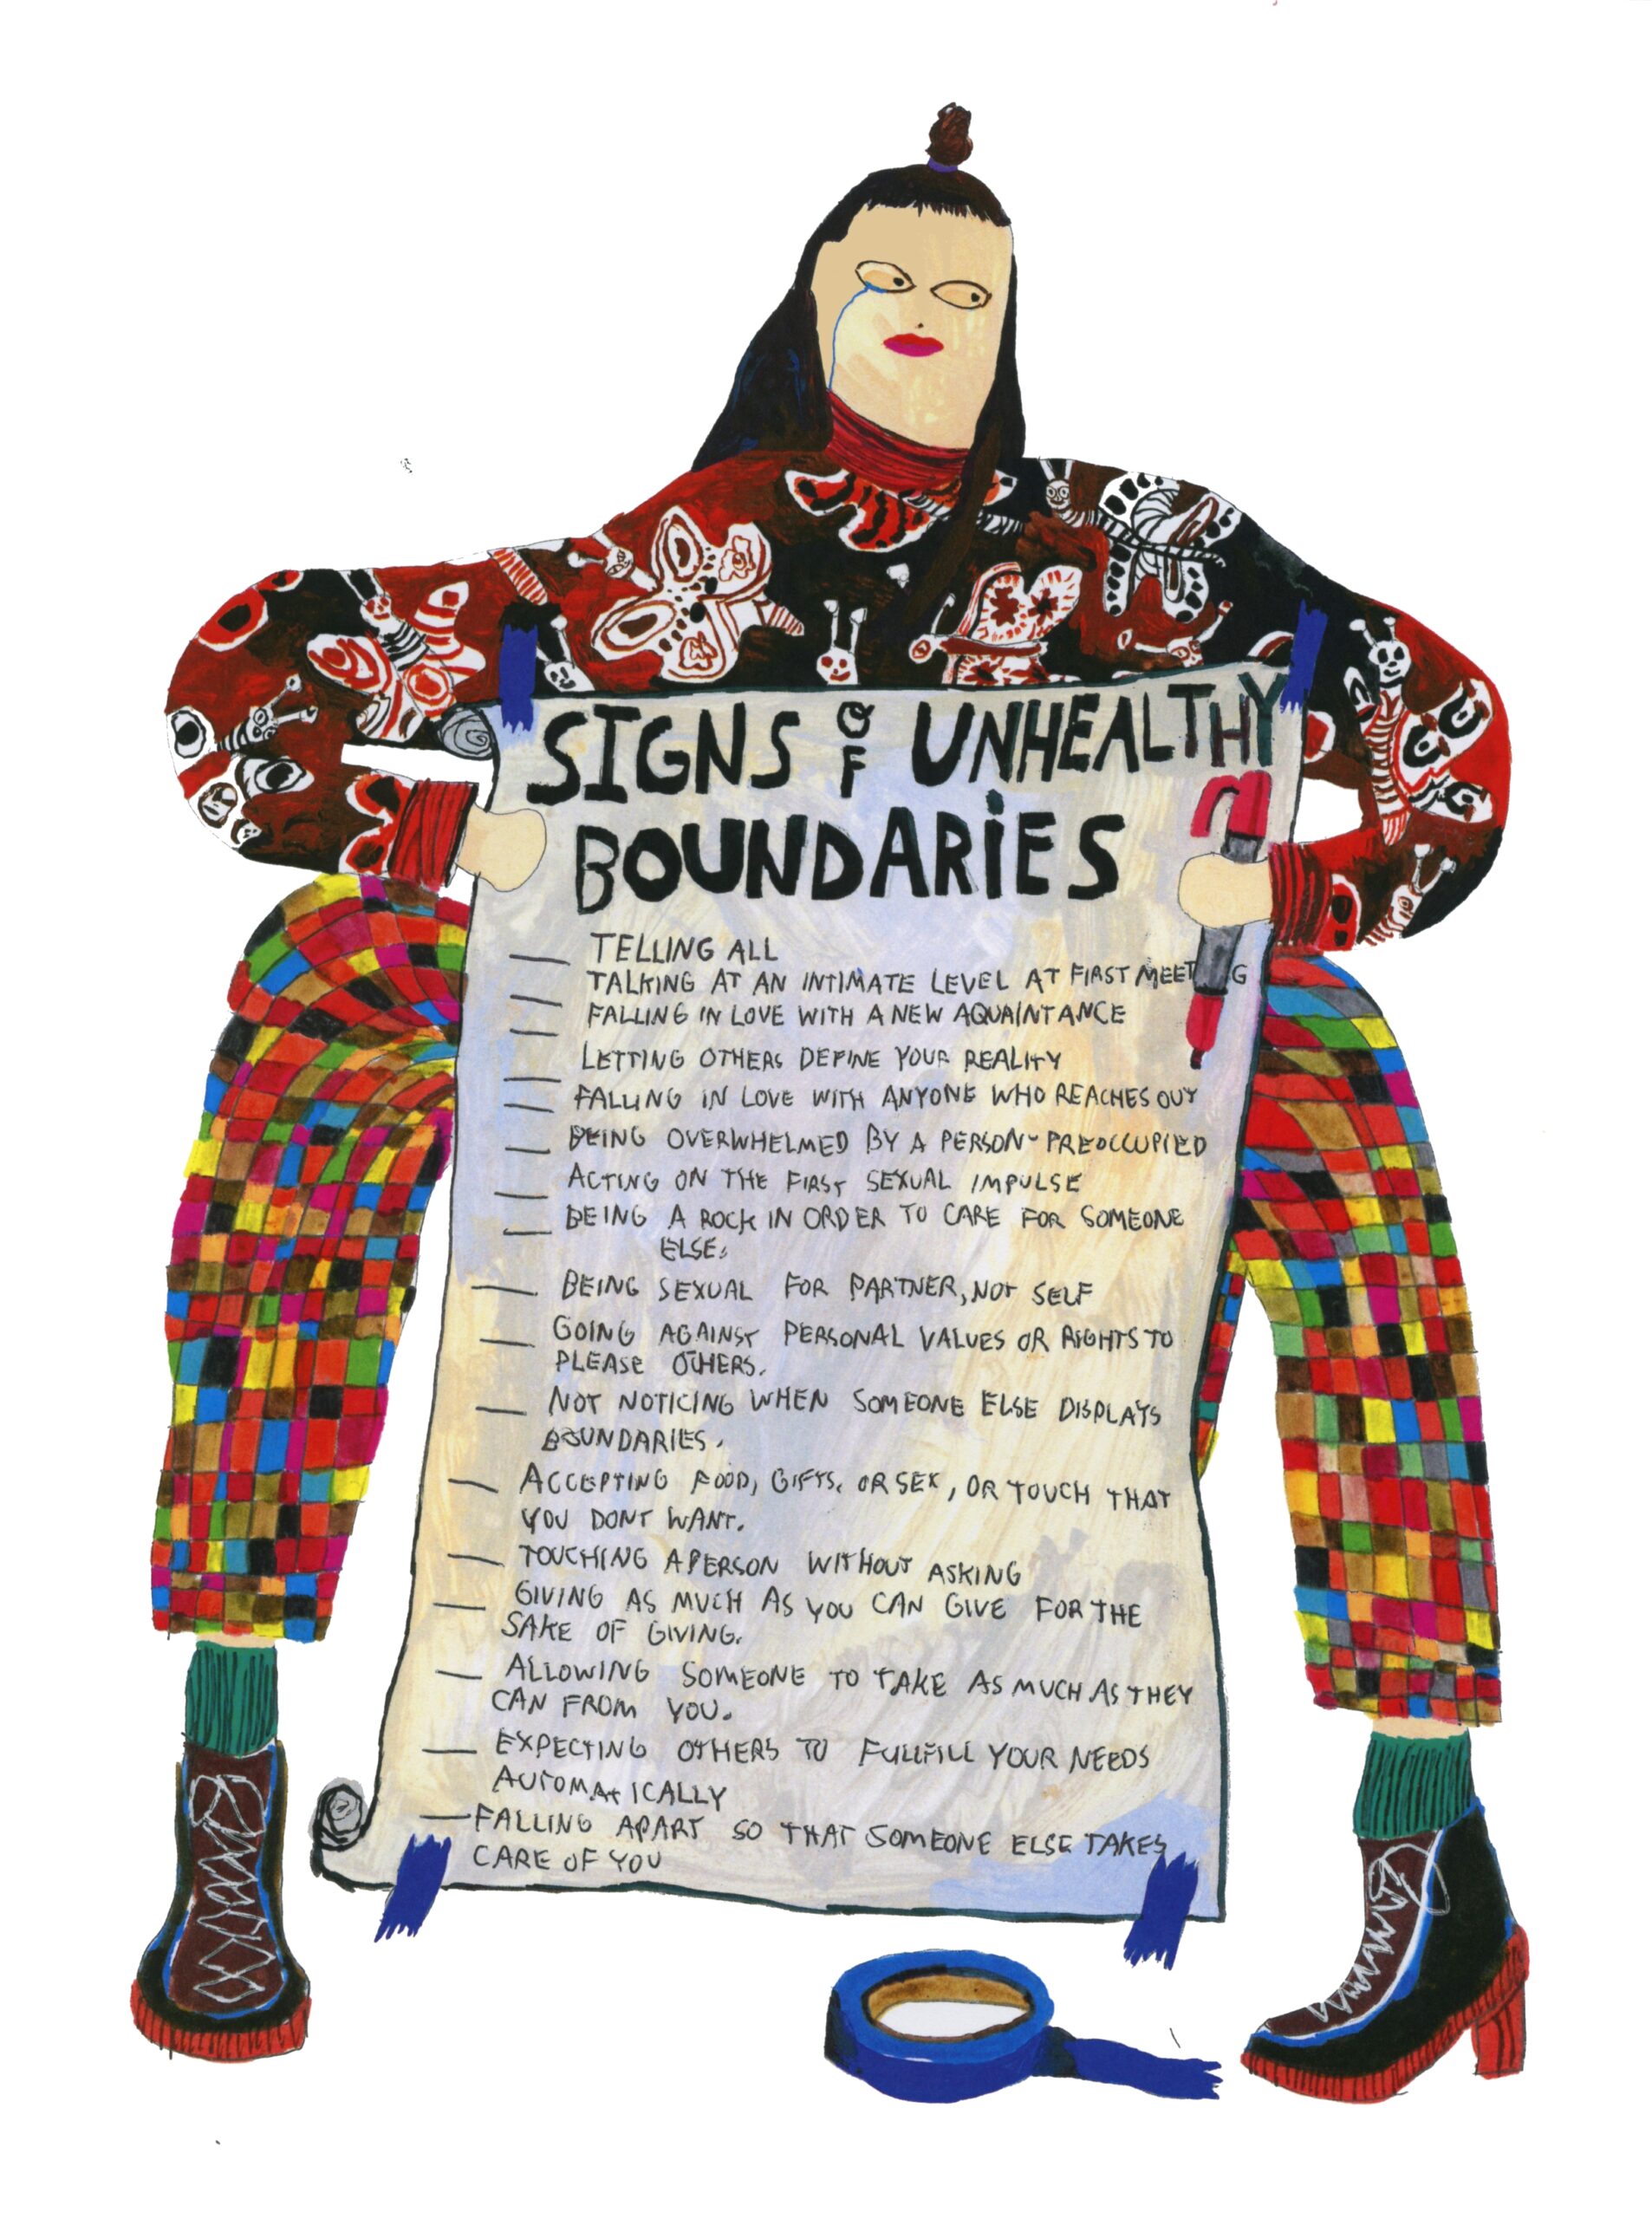 SIGNS OF UNHEALTHY
BOUNDARIES
— TELLING ALL
— TALKING AT AN INTIMATE LEVEL AT FIRST MEET G
— FALLING IN LOVE WITH A NEW AQUAINTANCE
— LETTING OTHERS DEFINE YOUR REALITY
— FALLING IN LOVE WITH ANYONE WHO REACHES OUT
— BEING OVERWHELMED BY A PERSON-PREOCCUPIED
— ACTING ON THE FIRST SEXUAL IMPULSE
— BEING A ROCK IN ORDER TO CARE FOR SOMEONE
ELSE.
— BEING SEXUAL FOR PARTNER, NOT SELF
— GOING AGAINST PERSONAL VALUES OR RIGHTS TO
PLEASE OTHERS.
— NOT NOTICING WHEN SOMEONE ELSE DISPLAYS
BOUNDARIES.
— ACCEPTING FOOD, GIFTS, OR SEX, OR TOUCH THAT
YOU DONT WANT.
— TOUCHING A PERSON WITHOUT ASKING
— GIVING AS MUCH AS YOU CAN GIVE FOR THE
SAKE OF GIVING.
— ALLOWING SOMEONE TO TAKE AS MUCH AS THEY
CAN FROM YOU.
— EXPECTING OTHERS TO FULLFILL YOUR NEEDS
AUTOMATICALLY
— FALLING APART SO THAT SOMEONE ELSE TAKES
CARE OF YOU